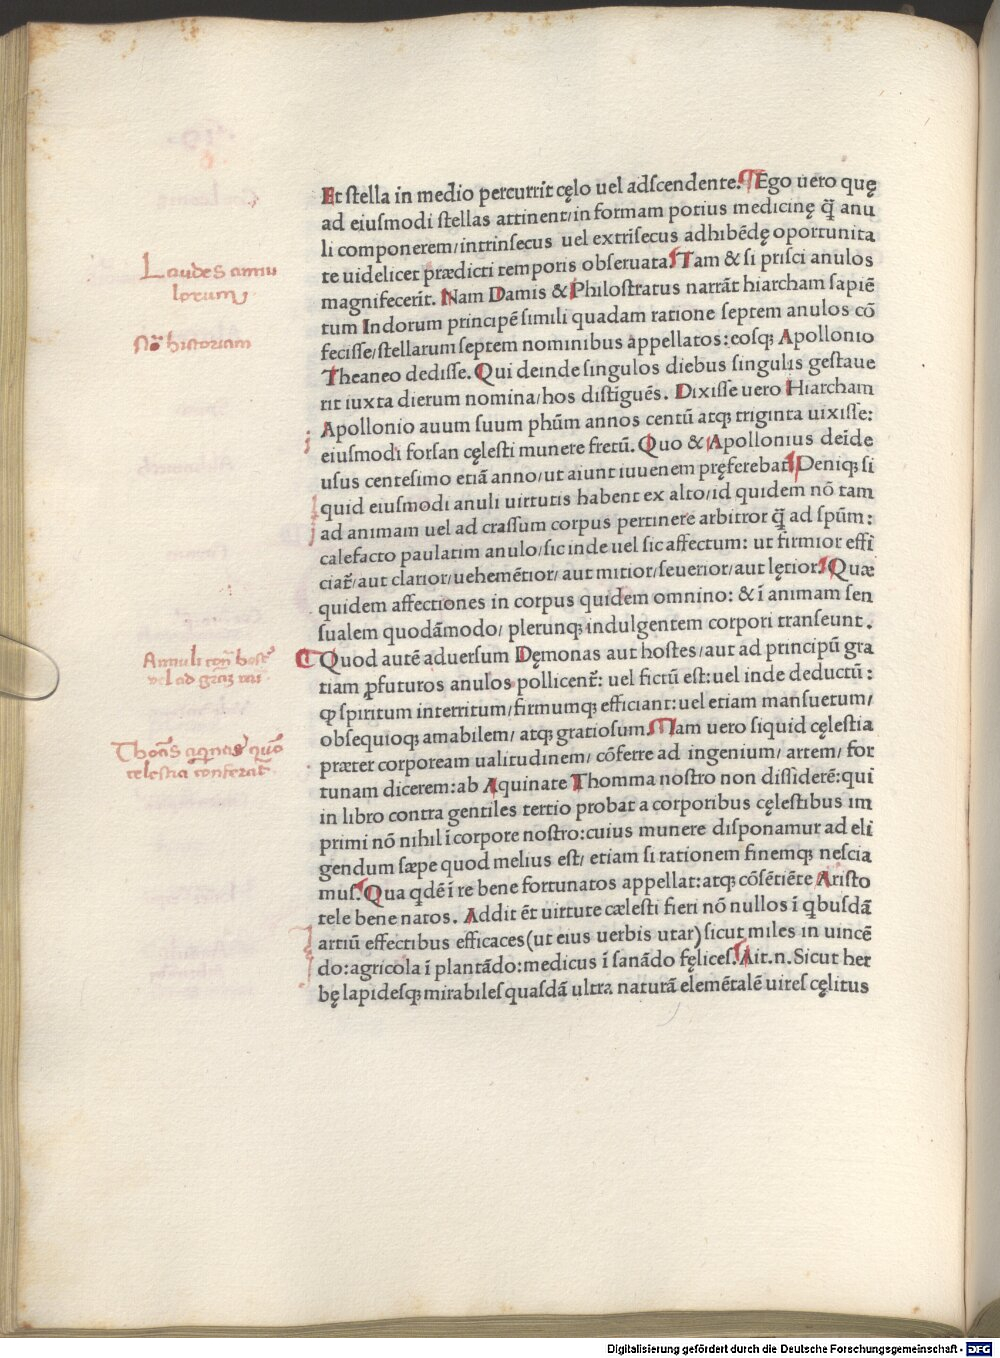 Et ſtella in medio percurrit cęlo uel adſcendente. Ego uero quę
ad eiuſmodi ſtellas attinent/in formam potius medicinę q̄ anu
li componerem/intrinſecus uel extrīſecus adhibēdę oportunita
te uidelicet prædicti temporis obſeruata. Tam & ſi priſci anulos
magnifecerīt. Nam Damis & Philoſtratus narrāt hiarcham ſapiē
tum Indorum principē ſimili quadam ratione ſeptem anulos cō
feciſſe/ſtellarum ſeptem nominibus appellatos: eoſq; Apollonio
Theaneo dediſſe. Qui deinde ſingulos diebus ſingulis geſtaue
rit iuxta dierum nomina/hos diſtīguēs. Dixiſſe uero Hiarcham
Apollonio auum ſuum phūm annos centū atq; triginta uixiſſe:
eiuſmodi forſan cęleſti munere fretū. Quo & Apollonius deīde
uſus centeſimo etiā anno/ut aiunt iuuenem pręferebat. Deniq; ſi
quid eiuſmodi anuli uirtutis habent ex alto/id quidem nō tam
ad animam uel ad craſſum corpus pertinere arbitror q̄ ad ſpūm:
calefacto paulatim anulo/ſic inde uel ſic affectum: ut firmior effi
ciat̄/aut clarior/uehemētior/aut mitior/ſeuerior/aut lętior. Quæ
quidem affectiones in corpus quidem omnino: & ī animam ſen
ſualem quodāmodo/plerunq; indulgentem corpori tranſeunt.
Quod autē aduerſum Dęmonas aut hoſtes/aut ad principū gra
tiam ꝓfuturos anulos pollicent̄: uel fictū eſt: uel inde deductū:
ꝙ ſpiritum interritum/firmumq; efficiant: uel etiam manſuetum/
obſequioq; amabilem/atq; gratioſum. Nam uero ſiquid cęleſtia
præter corpoream ualitudinem/cōferre ad ingenium/artem/for
tunam dicerem: ab Aquinate Thomma noſtro non diſſiderē: qui
in libro contra gentiles tertio probat a corporibus cęleſtibus im
primi nō nihil ī corpore noſtro: cuius munere diſponamur ad eli
gendum ſæpe quod melius eſt/etiam ſi rationem finemq; neſcia
muſ. Qua qdē ī re bene fortunatos appellat: atq; cōſētiēte Ariſto
tele bene natos. Addit ēt uirtute cæleſti fieri nō nullos ī qbuſdā
artiū effectibus efficaces (ut eius uerbis utar) ſicut miles in uincē
do: agricola ī plantādo: medicus ī ſanādo fęliceſ. Ait .n. Sicut her
bę lapideſq; mirabileſ quaſdā ultra naturā elemētalē uireſ cęlitus
Laudes annu
lorum
No historiam
Annuli
vel ad
Thoās aquinas quō
celestia conferāt
Digitalisierung gefördert durch die Deutsche Forschungsgemeinschaft - DFG